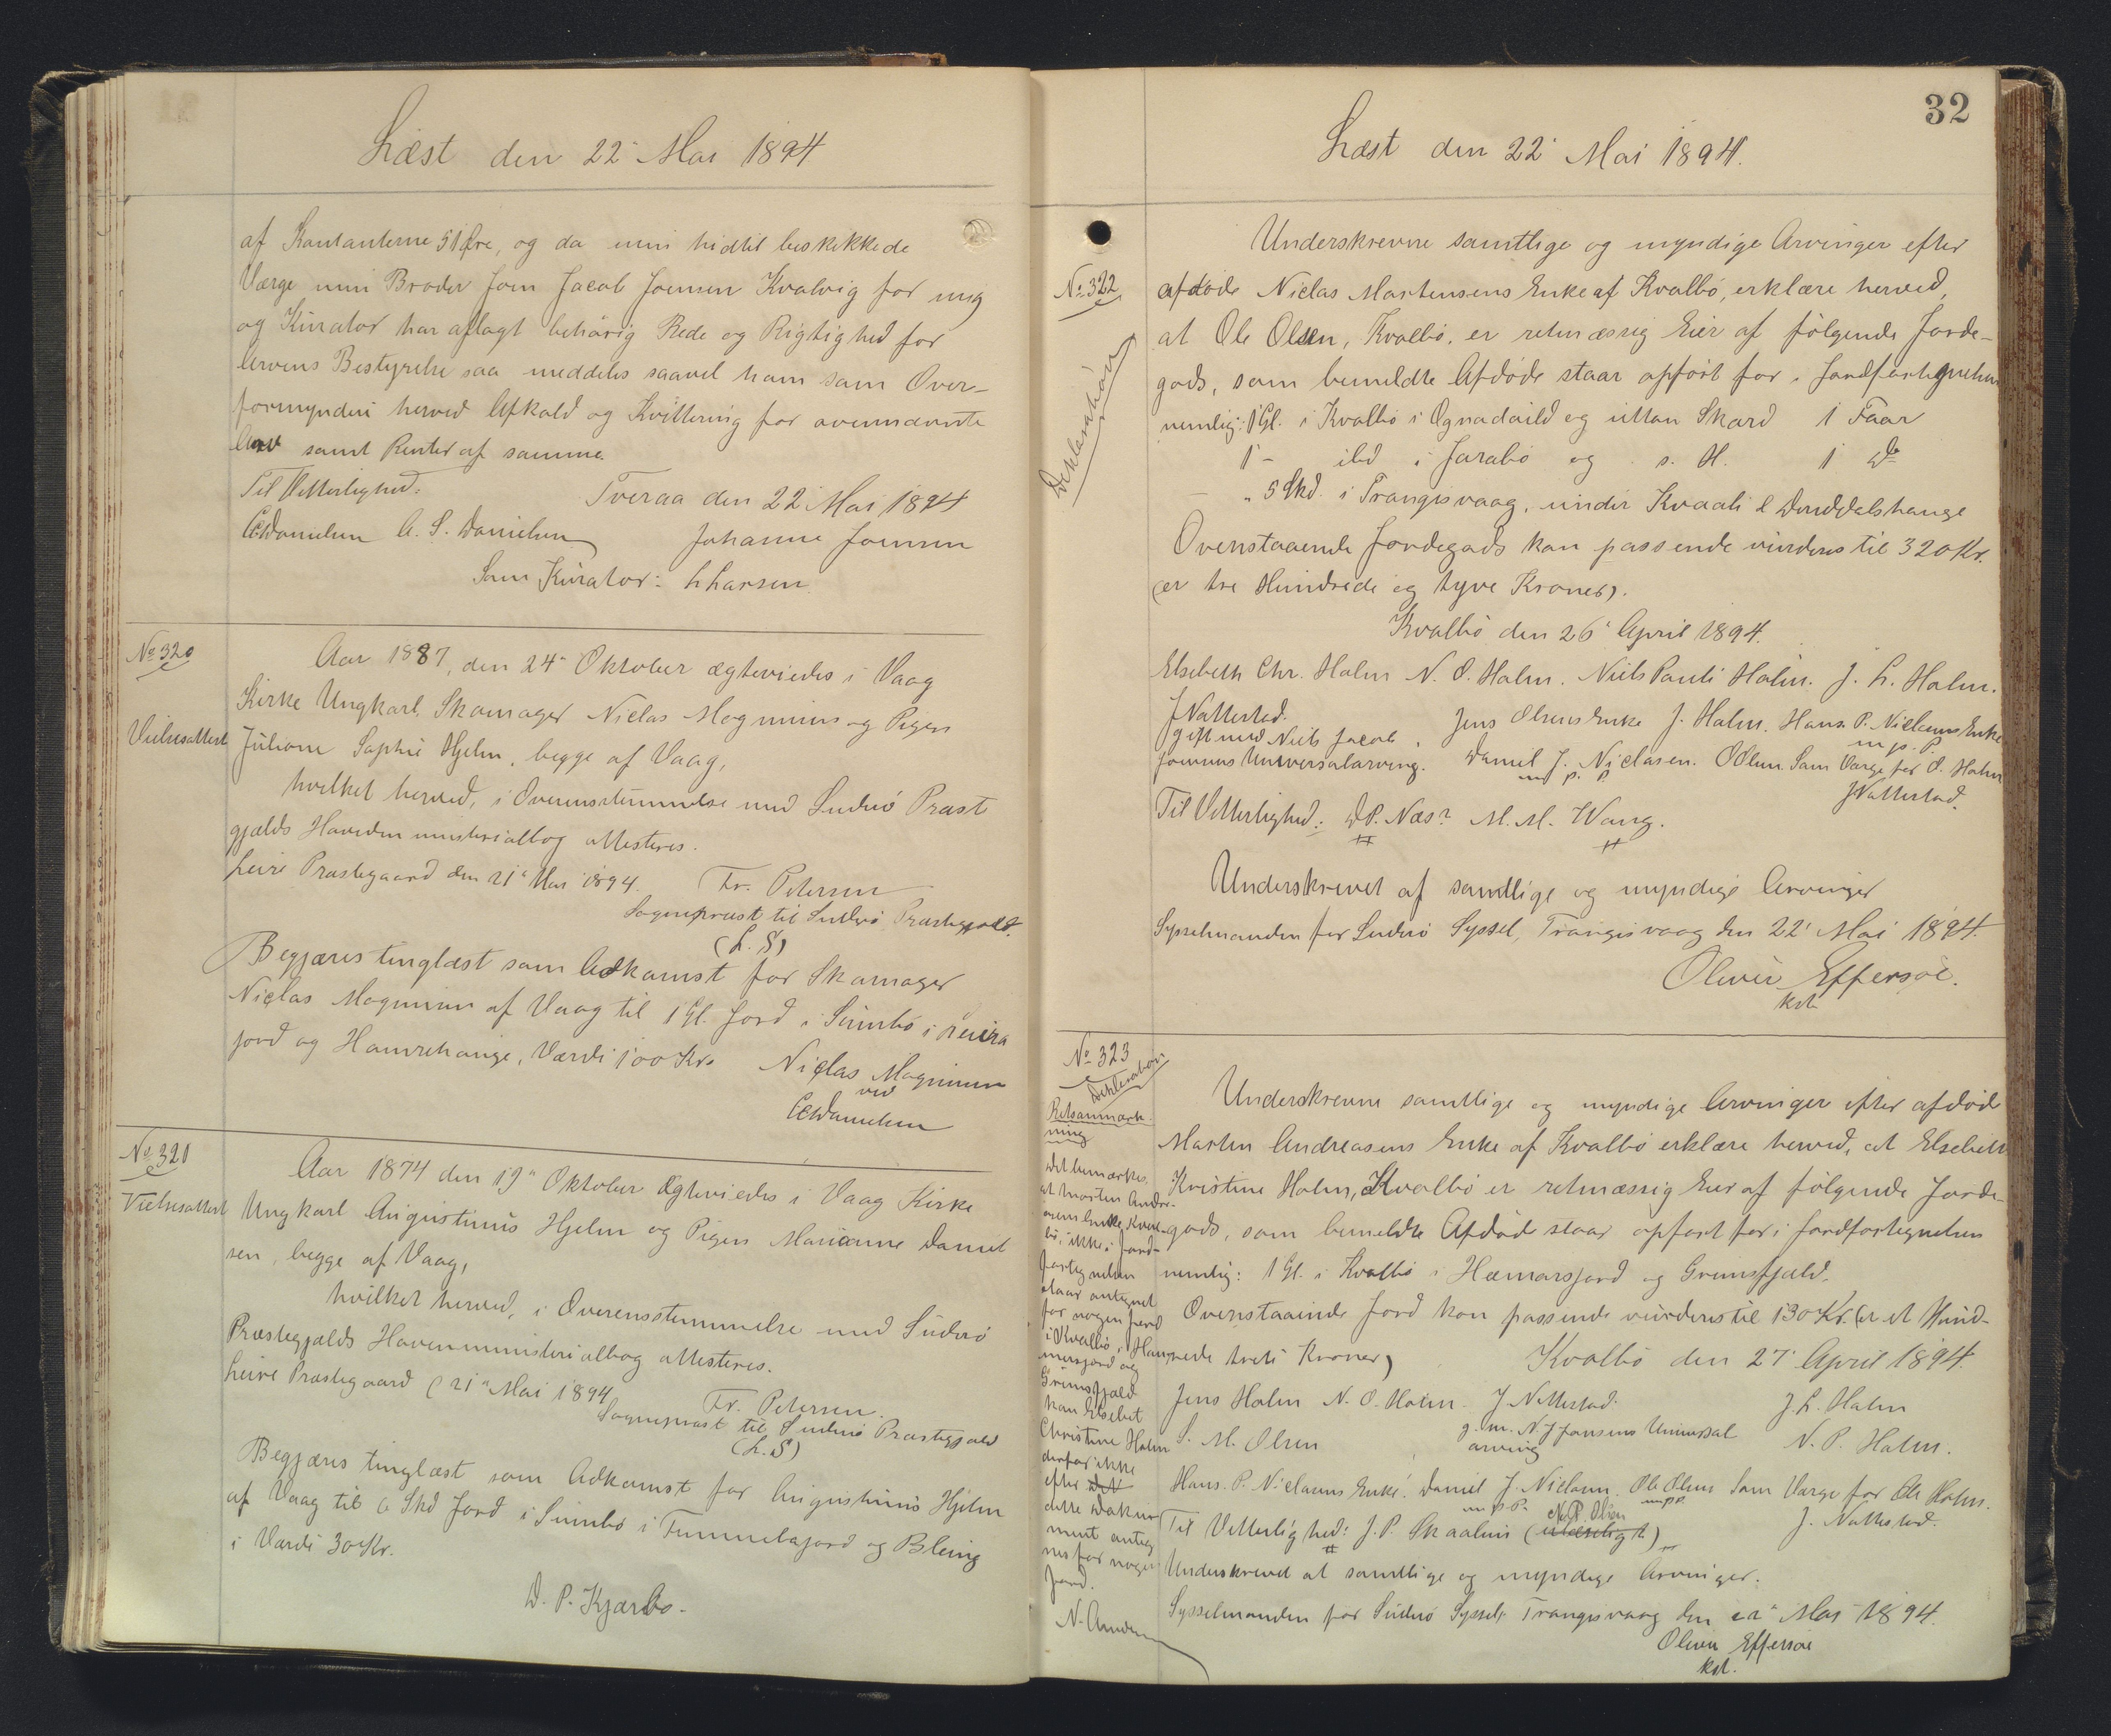 Læst den 22' Mai 1894
af Kontanterne 51 Øre, og da min hidtil beskikkede
Værge min Broder Joen Jacob Joensen Kvalvig for mig
og Kurator har aflagt behörig Rede og Rigtighed for
Arvens Bestyrelse saa meddeles saavel ham som Over-
formynderi herved Afkald og Kvittering for ovennævnte
Arv samt Renter af samme.
Til Vitterlighed: Tveraa den 22' Mai 1894
A. S. Danielsen Johanne Joensen
Som Kurator: L Larsen
No 320
Vielsesattest
Aar 1887, den 24' Oktober ægteviedes i Vaag
Kirke Ungkarl, Skomager Niclas Magnussen og Pigen
Juliane Sophie Hjelm, begge af Vaag,
hvilket herved, i Overensstemmelse med Suderö Præste
gjælds Hovedministerialbog attesteres.
Leire Præstegaard den 21' Mai 1894. Fr. Petersen
Sognepræst til Suderö Præstegjæld.
(L.S)
Begjæres tinglæst som Adkomst for Skomager
Niclas Magnussen af Vaag til 1 Gl. Jord i Sumbö i heira
jord og Hamrehauge, Værdi 100 Kr. Niclas Magnussen
ved
No 321
Vielsesattest
Aar 1874 den 19' Oktober ægteviedes i Vaag Kirke
Ungkarl Augustinus Hjelm og Pigen Marianne Daniel
sen, begge af Vaag,
hvilket herved, i Overensstemmelse med Suderö
Præstegjælds Hovedministerialbog attesteres.
Leire Præstegaard (21' Mai 1894
Fr. Petersen.
Sognepræst til Suderö Præstegjæld
(L.S)
Begjæres tinglæst som Adkomst for Augustinus Hjelm
af Vaag til 6 Skd Jord i Sumbö i Tummelsjord og Bleing
i Værdi 30 Kr.
D. P. Kjærbo.
32
Læst den 22' Mai 1894.
No 322
Deklaration
Underskrevne samtlige og myndige Arvinger efter
afdöde Niclas Mortensens Enke af Kvalbö, erklære herved,
at Ole Olsen, Kvalbö, er retmæssig Eier af fölgende Jorde-
gods, som bemeldte Afdöde staar opfört for i Jordfortegnelsen
nemlig: 1 Gl. i Kvalbö i Ognadeild og uttan Skard 1 Faar
1 - ibd i Jarabö og s. H. 1 do
" 5 Skd. i Trangisvaag, under Kvaali & Dendalshauge
Ovenstaaende Jordegods kan passende vurderes til 320 Kr.
(er tre Hundrede og tyve Kroner).
Kvalbö den 26' April 1894.
Elsebeth Chr. Holm N. O. Holm. Niels Pauli Holm. J. L. Holm.
J Nattestad.
gift med Niels Jacob Jens Olsens Enke J. Holm. Hans P. Niclasens Enke
m. p. P.
Joensens Universalarving. Daniel J. Niclasen. OOlsen Som Værge for O. Holm
m p. P JNattestad.
Til Vitterlighed: DP. Næs? M. M. Wang.
Underskrevet af samtlige og myndige Arvinger
Sysselmanden for Suderö Syssel, Trangisvaag den 22' Mai 1894.
Oliver Effersøe.
kst.
No 323
Deklaration
Underskrevne samtlige og myndige Arvinger efter afdöde
Morten Andreasens Enke af Kvalbö erklære herved, at Elsebeth
Kristine Holm, Kvalbö er retmæssig Eier af fölgende Jorde-
gods, som bemeldte Afdöde staar opfört for i Jordfortegnelsen
nemlig: 1 Gl. i Kvalbö i Hæmarsjord og Grumsfjæld.
Ovenstaaende Jord kan passende vurderes til 130 Kr. (er et Hund-
rede treti Kroner) Kvalbö den 27' April 1894.
Jens Holm N. O. Holm J Nattestad. J. L. Holm
S. M. Olsen g. m. N. J Joensens Universal N. P. Holm.
arving
Hans. P. Niclasens Enke. Daniel J. Niclasen. Ole Olsen Som Værge for Ole Holm.
m. p. P. m p P. J. Nattestad.
N. P. Olsen
Til Vitterlighed: J. P. Skaalum (ulæseligt)
Underskrevet af samtlige og myndige Arvinger.
Sysselmanden for Suderö Syssel, Trangisvaag den 22' Mai 1894.
Oliver Effersøe
kst.
Retsanmærk-
ning
Det bemærkes,
at Morten Andre-
asens Enke, Kval-
bö, ikke i Jord-
fortegnelsen
staar antegnet
for nogen Jord
i Kvalbö, i Hæm-
mersjord og
Grumsfjæld
kan Elsebet
Christine Holm
derfor ikke
efter det
dette Doku-
ment anteg
nes for nogen
Jord.
N. Andersen